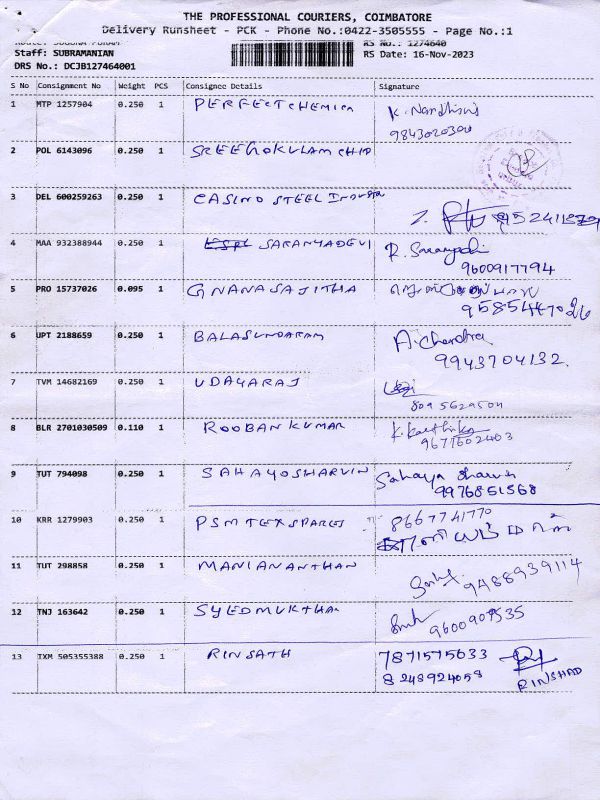 THE PROFESSIONAL COURIERS, COIMBATORE
Delivery Runsheet - PCK - Phone No.:0422-3505555 - Page No.:1
RS No.: 1274640
Staff: SUBRAMANIAN
RS Date: 16-Nov-2023
DRS No.: DCJB127464001
S No Consignment No Weight PCS Consignee Details Signature
1 MTP 1257904 0.250 1 PERFECTCHEMICA K. Nandhini
9843020300
2 POL 6143096 0.250 1 SREEGOKULAM CHIP
3 DEL 600259263 0.250 1 CASINO STEEL
4 MAA 932388944 0.250 1 SARANYADEVI R. Saranyadevi
9600917794
5 PRO 15737026 0.095 1 GNANASAJITHA
9585447026
6 UPT 2188659 0.250 1 BALASUNDARAM A. Chandra
9943704132.
7 TVM 14682169 0.250 1 UDAYARAJ
8095629504
8 BLR 2701030509 0.110 1 ROOBANKUMAR K. Karthika
9677602403
9 TUT 794098 0.250 1 SAHAYOSHARVIN Sahaya
9976851568
10 KRR 1279903 0.250 1 PSMTEXSPARES 8667741770
11 TUT 298858 0.250 1 MANIANANTHAN
9488939114
12 TNJ 163642 0.250 1 SYEDMUKTHAR
13 TXM 505355388 0.250 1 RINSATH 7871575633
8248924059 RINSHAD